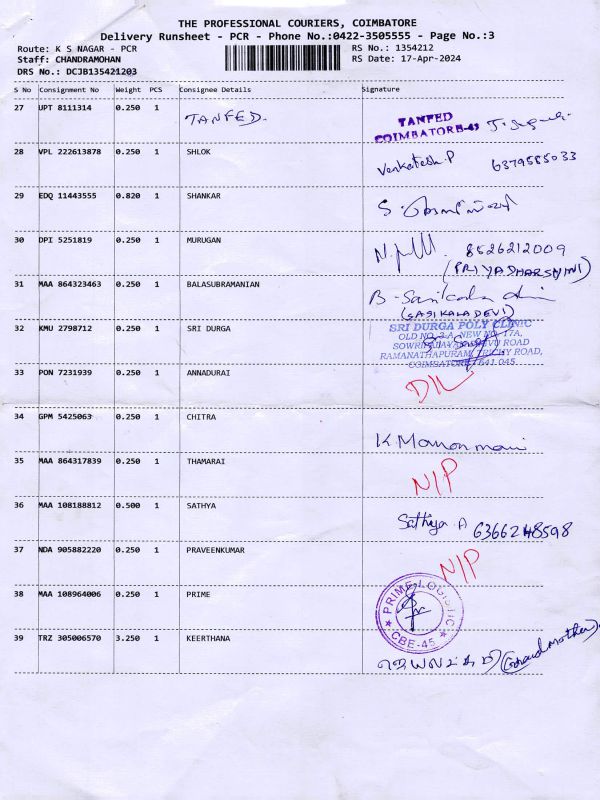 THE PROFESSIONAL COURIERS, COIMBATORE
Delivery Runsheet - PCR - Phone No.:0422-3505555 - Page No.:3
Route: K S NAGAR - PCR RS No.: 1354212
Staff: CHANDRAMOHAN RS Date: 17-Apr-2024
DRS No.: DCJB135421203
S No Consignment No Weight PCS Consignee Details Signature
27 UPT 8111314 0.250 1 TANFED. TANFED
COIMBATORE-43
28 VPL 222613878 0.250 1 SHLOK Venkatesh.P 6379585033
29 EDQ 11443555 0.820 1 SHANKAR
30 DPI 5251819 0.250 1 MURUGAN 8526212009
(PRIYADHARSHINI)
31 MAA 864323463 0.250 1 BALASUBRAMANIAN B-Sasikala devi
(SASIKALADEVI)
32 KMU 2798712 0.250 1 SRI DURGA SRI DURGA POLY CLINIC
OLD NO. 3-A, NEW NO. 17A,
ROAD
RAMANATHAPURAM, TRICHY ROAD,
COIMBATORE-641 045
33 PON 7231939 0.250 1 ANNADURAI D/L
34 GPM 5425063 0.250 1 CHITRA K Manonmani
35 MAA 864317839 0.250 1 THAMARAI N/P
36 MAA 108188812 0.500 1 SATHYA Sathya A 6366248598
37 NDA 905882220 0.250 1 PRAVEENKUMAR N/P
38 MAA 108964006 0.250 1 PRIME PRIME LOGISTIC
CBE-45
39 TRZ 305006570 3.250 1 KEERTHANA (Grand Mother)